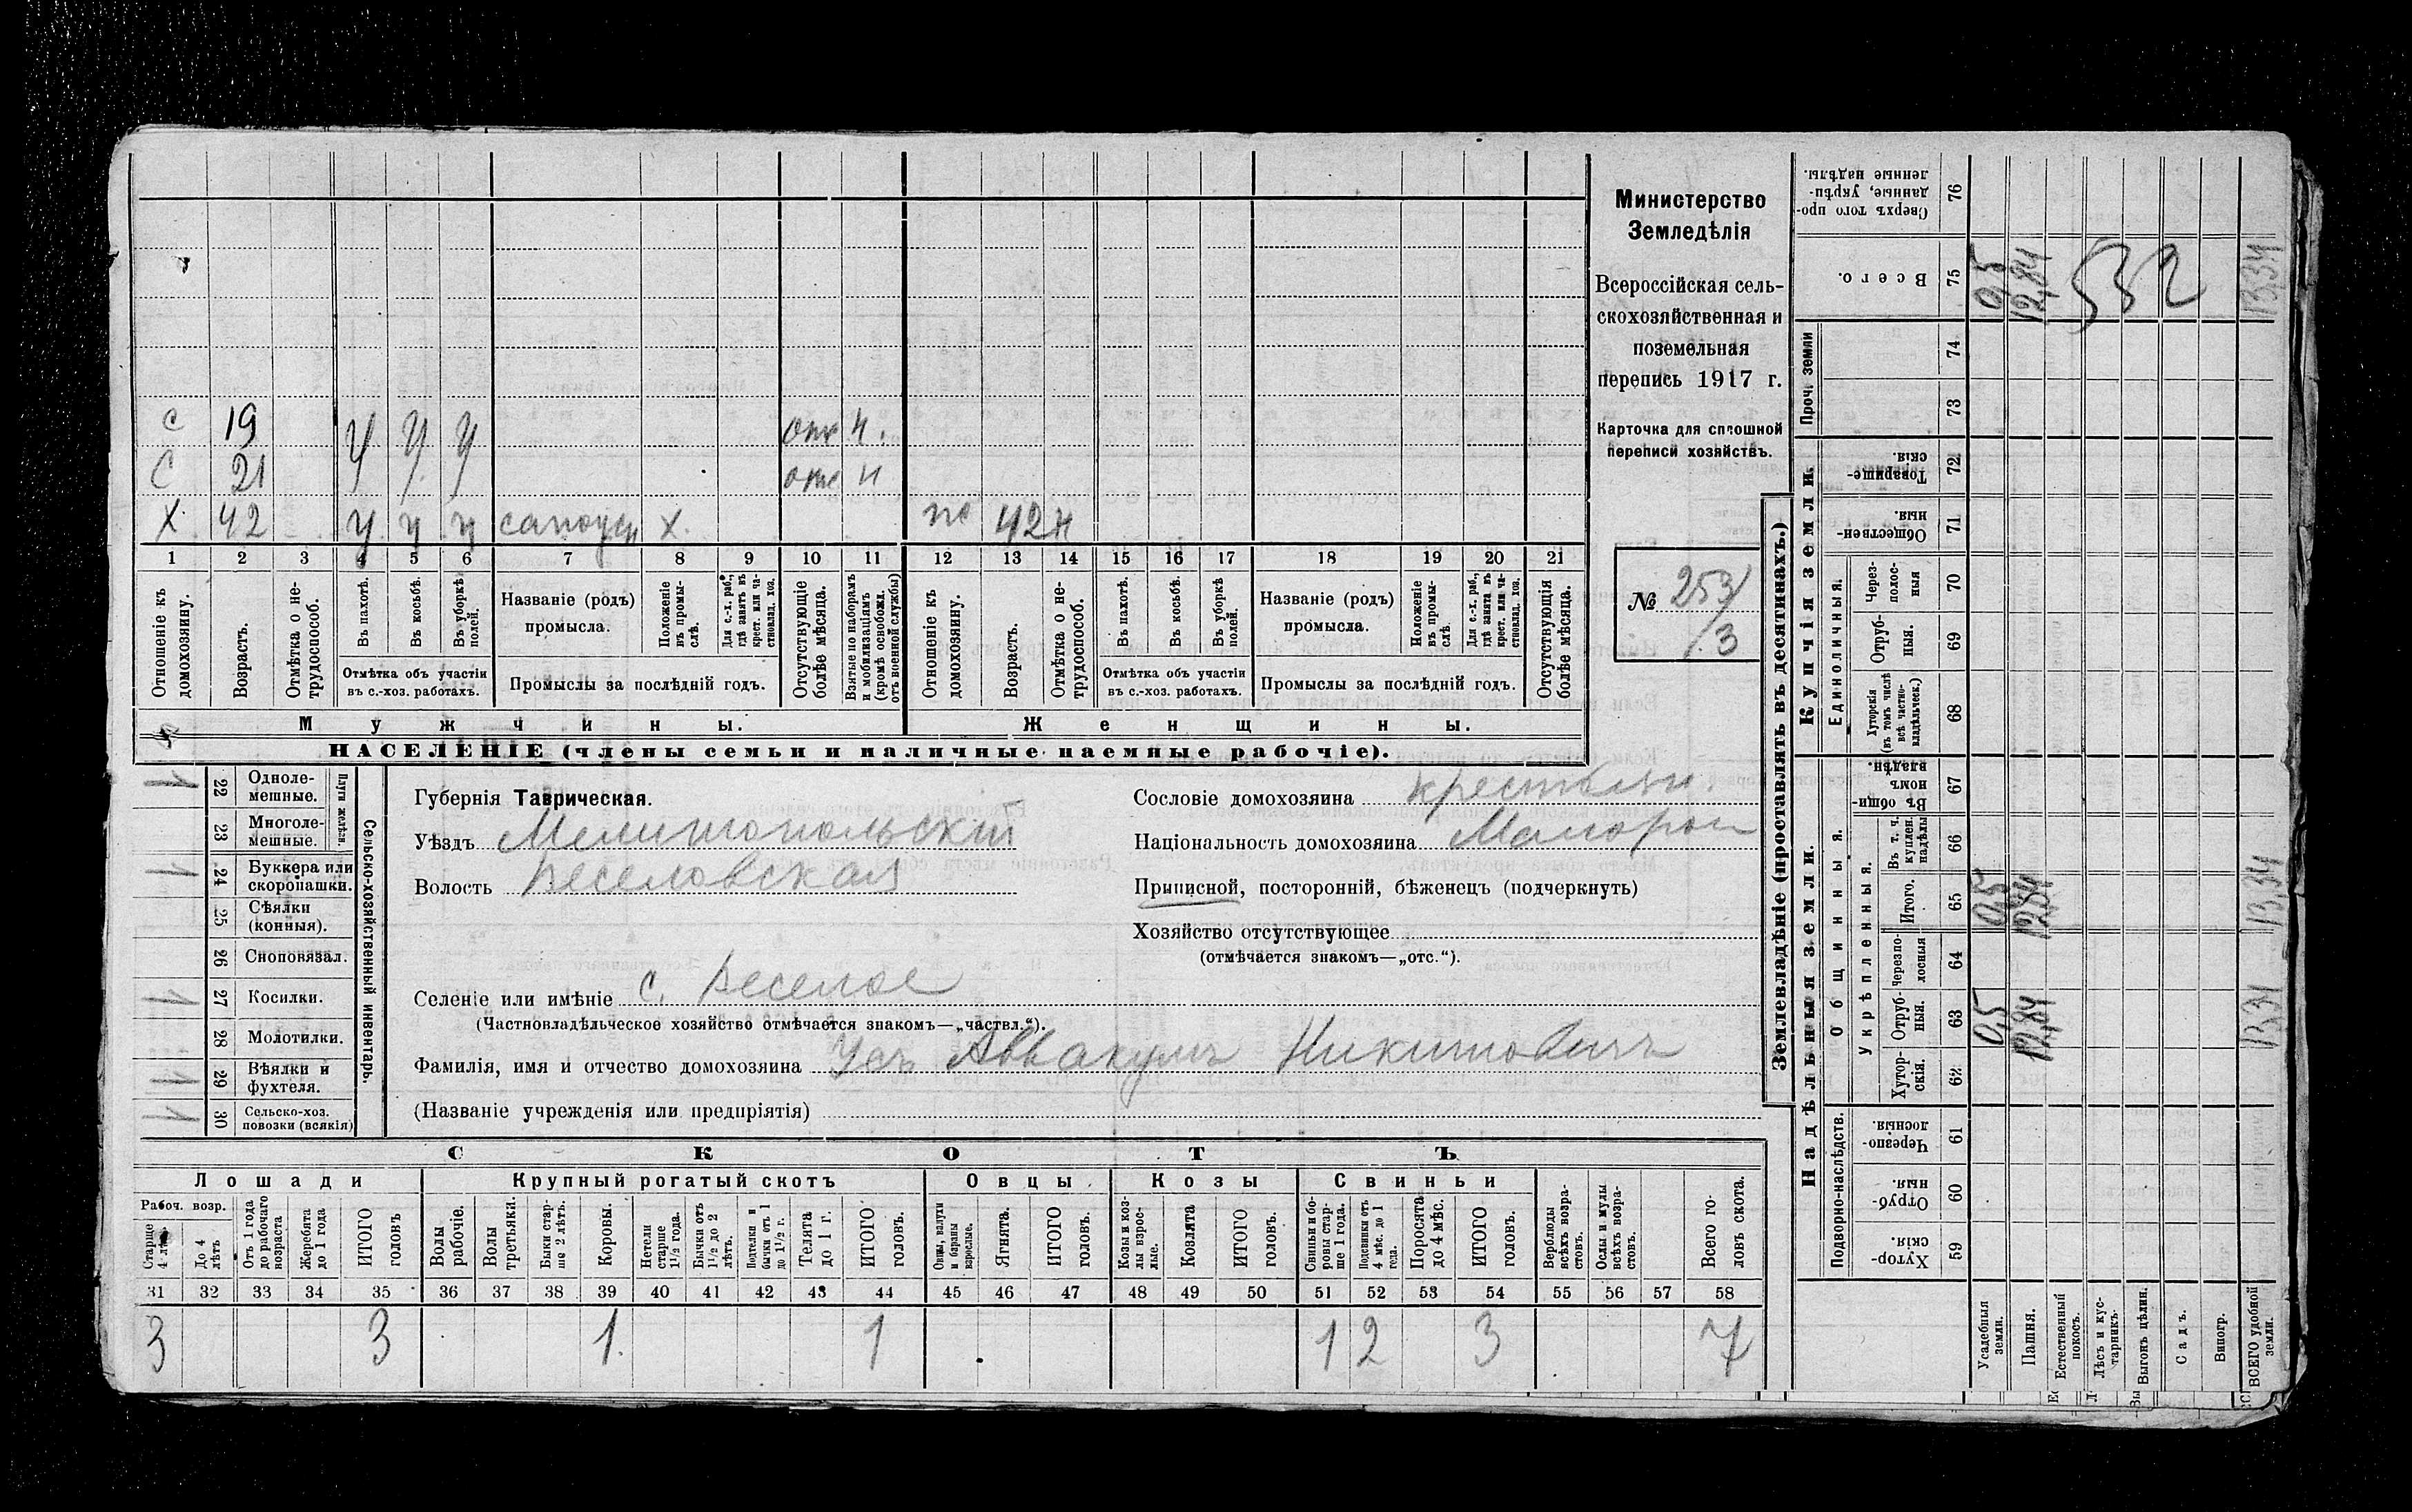 с 19 у у у отс н.
с 21 у у у отс н
х 42 у у у х. 42 н
1 2 3 4 5 6 7 8 9 10 11 12 13 14 15 16 17 18 19 20 21
Отношеніе къ домохозяину.
Возрастъ.
Отмѣтка о не-
трудоспособ.
Въ пахотѣ.
Въ косьбѣ.
Въ уборкѣ
полей.
Отмѣтка объ участіи
въ с.-хоз. работахъ.
Названіе (родъ)
промысла.
Положеніе
въ промы-
слѣ.
Для с.-х. раб.,
гдѣ занятъ въ
крест. или ча-
стновлад. хоз.
Промыслы за послѣдній годъ.
Отсутствующіе
болѣе мѣсяца.
Взятые по наборамъ
и мобилизаціямъ
(кромѣ освобожд.
отъ военной службы)
Отношеніе къ
домохозяину.
Возрастъ.
Отмѣтка о не-
трудоспособ.
Въ пахотѣ.
Въ косьбѣ.
Въ уборкѣ
полей.
Отмѣтка объ участіи
въ с.-хоз. работахъ.
Названіе (родъ)
промысла.
Положеніе
въ промы-
слѣ.
Для с.-х. раб.,
гдѣ занята въ
крест. или ча-
стновлад. хоз.
Промыслы за послѣдній годъ.
Отсутствующія
болѣе мѣсяца.
Мужчины.
Женщины.
НАСЕЛЕНІЕ (члены семьи и наличные наемные рабочіе).
Министерство
Земледѣлія
Всероссійская сель-
скохозяйственная и
поземельная
перепись 1917 г.
Карточка для сплошной
переписи хозяйствъ.
№ 253/
3
22 Одноле-
мешные.
23 Многоле-
мешные.
Плуги желѣзн.
24 Буккера или
скоропашки.
25 Сѣялки
(конныя).
26 Сноповязал.
27 Косилки.
28 Молотилки.
29 Вѣялки и
фухтеля.
30 Сельско-хоз.
повозки (всякія)
Сельско-хозяйственный инвентарь.
Губернія Таврическая.
Уѣздъ Мелитопольскій
Волость Веселовская
Сословіе домохозяина крестьян.
Національность домохозяина Малорос
Приписной, посторонній, бѣженецъ (подчеркнуть)
Хозяйство отсутствующее
(отмѣчается знакомъ—„отс.“).
Селеніе или имѣніе с. Веселое
(Частновладѣльческое хозяйство отмѣчается знакомъ—„частвл.“).
Фамилія, имя и отчество домохозяина Усъ Аввакумъ Никитовичъ
(Названіе учрежденія или предпріятія)
СКОТЪ
Лошади
Крупный рогатый скотъ
Овцы
Козы
Свиньи
Рабоч. возр.
Старше
4 лѣтъ
До 4
лѣтъ
Отъ 1 года
до рабочаго
возраста
Жеребята
до 1 года
ИТОГО
головъ
Волы
рабочіе.
Волы
третьяки.
Быки стар-
ше 2 лѣтъ.
Коровы.
Нетели
старше
1½ года.
Бычки отъ
1½ до 2
лѣтъ.
Подтелки и
бычки отъ 1
до 1½ г.
Телята
до 1 г.
ИТОГО
головъ.
Овцы, валухи
и бараны
взрослые.
Ягнята.
ИТОГО
головъ.
Козы и коз-
лы взрос-
лые.
Козлята
ИТОГО
головъ.
Свиньи и бо-
ровы стар-
ше 1 года.
Подсвинки отъ
4 мѣс. до 1
года.
Поросята
до 4 мѣс.
ИТОГО
головъ.
Верблюды
всѣхъ возра-
стовъ.
Ослы и мулы
всѣхъ возра-
стовъ.
Всего го-
ловъ скота.
31 32 33 34 35 36 37 38 39 40 41 42 43 44 45 46 47 48 49 50 51 52 53 54 55 56 57 58
3 3 1. 1 1 2 3 7
Землевладѣніе (проставлять въ десятинахъ.)
Купчія земли.
Надѣльныя земли.
Сверхъ того про-
данные, укрѣп-
ленные надѣлы.
76
Всего.
75
0,5
12,84
532
13,34
Проч. земли
74
73
Товарище-
скія.
72
Обществен-
ныя.
71
Единоличныя.
Через-
полос-
ныя
70
Отруб-
ныя.
69
Хуторскія
(въ томъ числѣ
всѣ частно-
владѣльческ.)
68
Общинныя.
Въ общи
номъ
владѣн.
67
Укрѣпленныя.
Въ т. ч.
куплен.
надѣлы
66
Итого.
65
0,5
12,84
13,34
Черезпо-
лосныя
64
Отруб-
ныя.
63
0,5
12,84
13,34
Хутор-
скія.
62
Подворно-наслѣдств.
Черезпо-
лосныя.
61
Отруб-
ныя.
60
Хутор-
скія.
59
Усадебныя
земли.
Пашня.
Естественный
покосъ.
Лѣсъ и кус-
тарникъ.
Выгонъ цѣлин.
Садъ.
Виногр.
ВСЕГО удобной
земли.